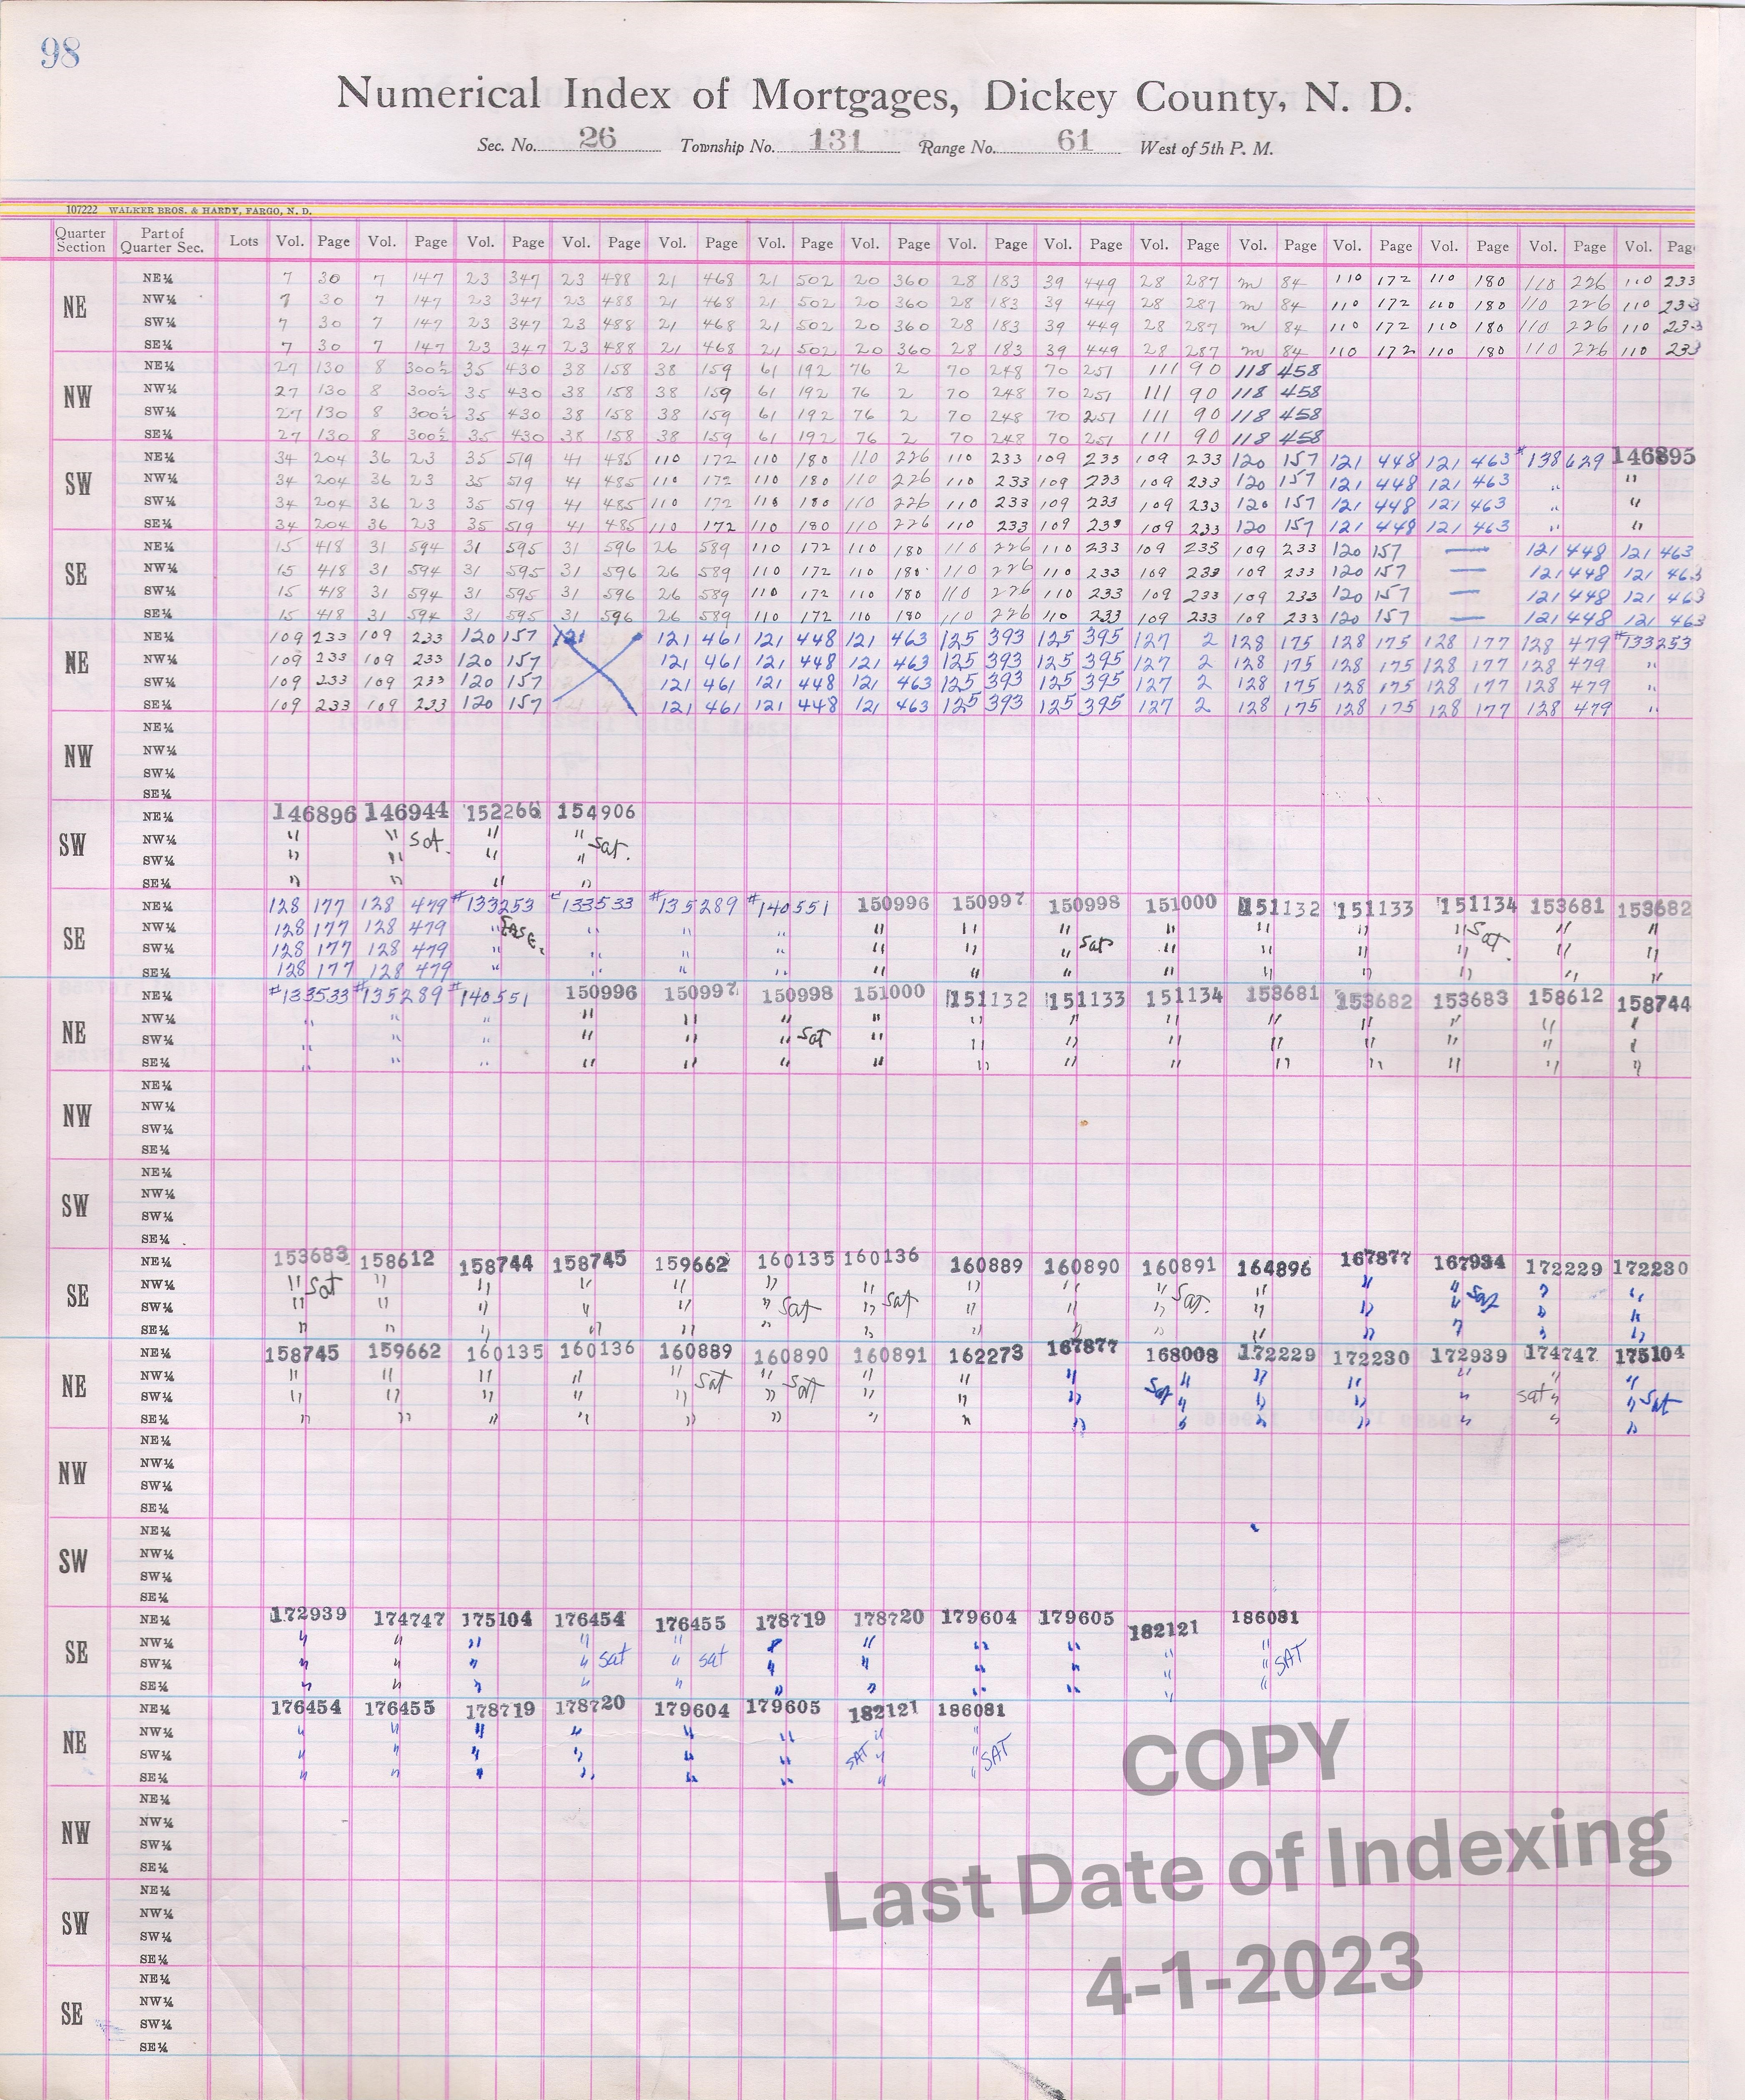 98
Numerical Index of Mortgages, Dickey County, N. D.
Sec. No. 26 Township No. 131 Range No. 61 West of 5th P. M.
107222 WALKER BROS. & HARDY, FARGO, N. D.
Quarter Section Part of Quarter Sec. Lots Vol. Page Vol. Page Vol. Page Vol. Page Vol. Page Vol. Page Vol. Page Vol. Page Vol. Page Vol. Page Vol. Page Vol. Page Vol. Page Vol. Page Vol. Page
NE
NE¼ 7 30 7 147 23 347 23 488 21 468 21 502 20 360 28 183 39 449 28 287 m 84 110 172 110 180 110 226 110 233
NW¼ 7 30 7 147 23 347 23 488 21 468 21 502 20 360 28 183 39 449 28 287 m 84 110 172 110 180 110 226 110 233
SW¼ 7 30 7 147 23 347 23 488 21 468 21 502 20 360 28 183 39 449 28 287 m 84 110 172 110 180 110 226 110 233
SE¼ 7 30 7 147 23 347 23 488 21 468 21 502 20 360 28 183 39 449 28 287 m 84 110 172 110 180 110 226 110 233
NW
NE¼ 27 130 8 300½ 35 430 38 158 38 159 61 192 76 2 70 248 70 251 111 90 118 458
NW¼ 27 130 8 300½ 35 430 38 158 38 159 61 192 76 2 70 248 70 251 111 90 118 458
SW¼ 27 130 8 300½ 35 430 38 158 38 159 61 192 76 2 70 248 70 251 111 90 118 458
SE¼ 27 130 8 300½ 35 430 38 158 38 159 61 192 76 2 70 248 70 251 111 90 118 458
SW
NE¼ 34 204 36 23 35 519 41 485 110 172 110 180 110 226 110 233 109 233 109 233 120 157 121 448 121 463 #138629 146895
NW¼ 34 204 36 23 35 519 41 485 110 172 110 180 110 226 110 233 109 233 109 233 120 157 121 448 121 463 " "
SW¼ 34 204 36 23 35 519 41 485 110 172 110 180 110 226 110 233 109 233 109 233 120 157 121 448 121 463 " "
SE¼ 34 204 36 23 35 519 41 485 110 172 110 180 110 226 110 233 109 233 109 233 120 157 121 448 121 463 " "
SE
NE¼ 15 418 31 594 31 595 31 596 26 589 110 172 110 180 110 226 110 233 109 233 109 233 120 157 — 121 448 121 463
NW¼ 15 418 31 594 31 595 31 596 26 589 110 172 110 180 110 226 110 233 109 233 109 233 120 157 — 121 448 121 463
SW¼ 15 418 31 594 31 595 31 596 26 589 110 172 110 180 110 226 110 233 109 233 109 233 120 157 — 121 448 121 463
SE¼ 15 418 31 594 31 595 31 596 26 589 110 172 110 180 110 226 110 233 109 233 109 233 120 157 — 121 448 121 463
NE
NE¼ 109 233 109 233 120 157 121 121 461 121 448 121 463 125 393 125 395 127 2 128 175 128 175 128 177 128 479 #133253
NW¼ 109 233 109 233 120 157 121 461 121 448 121 463 125 393 125 395 127 2 128 175 128 175 128 177 128 479 "
SW¼ 109 233 109 233 120 157 121 461 121 448 121 463 125 393 125 395 127 2 128 175 128 175 128 177 128 479 "
SE¼ 109 233 109 233 120 157 121 461 121 448 121 463 125 393 125 395 127 2 128 175 128 175 128 177 128 479 "
NW
NE¼
NW¼
SW¼
SE¼
SW
NE¼ 146896 146944 152266 154906
NW¼ " " Sat. " " Sat.
SW¼ " " " "
SE¼ " " " "
SE
NE¼ 128 177 128 479 #133253 #133533 #135289 #140551 150996 150997 150998 151000 151132 151133 151134 153681 153682
NW¼ 128 177 128 479 " " " " " " " " " " " Sat " "
SW¼ 128 177 128 479 " " " " " " " Sat " " " " " "
SE¼ 128 177 128 479 " " " " " " " " " " " " "
NE
NE¼ #133533 #135289 #140551 150996 150997 150998 151000 151132 151133 151134 153681 153682 153683 158612 158744
NW¼ " " " " " " " " " " " " " " "
SW¼ " " " " " " Sat " " " " " " " " "
SE¼ " " " " " " " " " " " " " " "
NW
NE¼
NW¼
SW¼
SE¼
SW
NE¼
NW¼
SW¼
SE¼
SE
NE¼ 153683 158612 158744 158745 159662 160135 160136 160889 160890 160891 164896 167877 167934 172229 172230
NW¼ " Sat " " " " " " " " " " " " " "
SW¼ " " " " " " Sat " Sat " " " Sat. " " " Sat " "
SE¼ " " " " " " " " " " " " " " "
NE
NE¼ 158745 159662 160135 160136 160889 160890 160891 162273 167877 168008 172229 172230 172939 174747 175104
NW¼ " " " " " Sat " Sat " " " Sat " " " " " "
SW¼ " " " " " " " " " " " " " Sat " " Sat
SE¼ " " " " " " " " " " " " " " "
NW
NE¼
NW¼
SW¼
SE¼
SW
NE¼
NW¼
SW¼
SE¼
SE
NE¼ 172939 174747 175104 176454 176455 178719 178720 179604 179605 182121 186081
NW¼ " " " " " " " " " " "
SW¼ " " " " sat " sat " " " " " " SAT
SE¼ " " " " " " " " " " "
NE
NE¼ 176454 176455 178719 178720 179604 179605 182121 186081
NW¼ " " " " " " " "
SW¼ " " " " " " SAT " " SAT
SE¼ " " " " " " " "
NW
NE¼
NW¼
SW¼
SE¼
SW
NE¼
NW¼
SW¼
SE¼
SE
NE¼
NW¼
SW¼
SE¼
COPY
Last Date of Indexing
4-1-2023